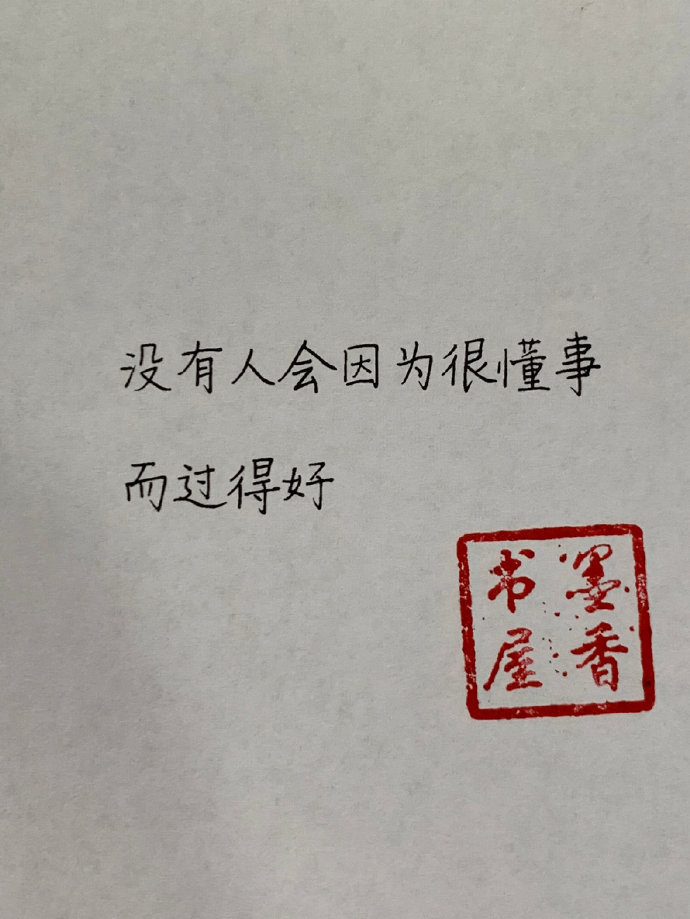 没有人会因为很懂事
而过得好
墨香
书屋